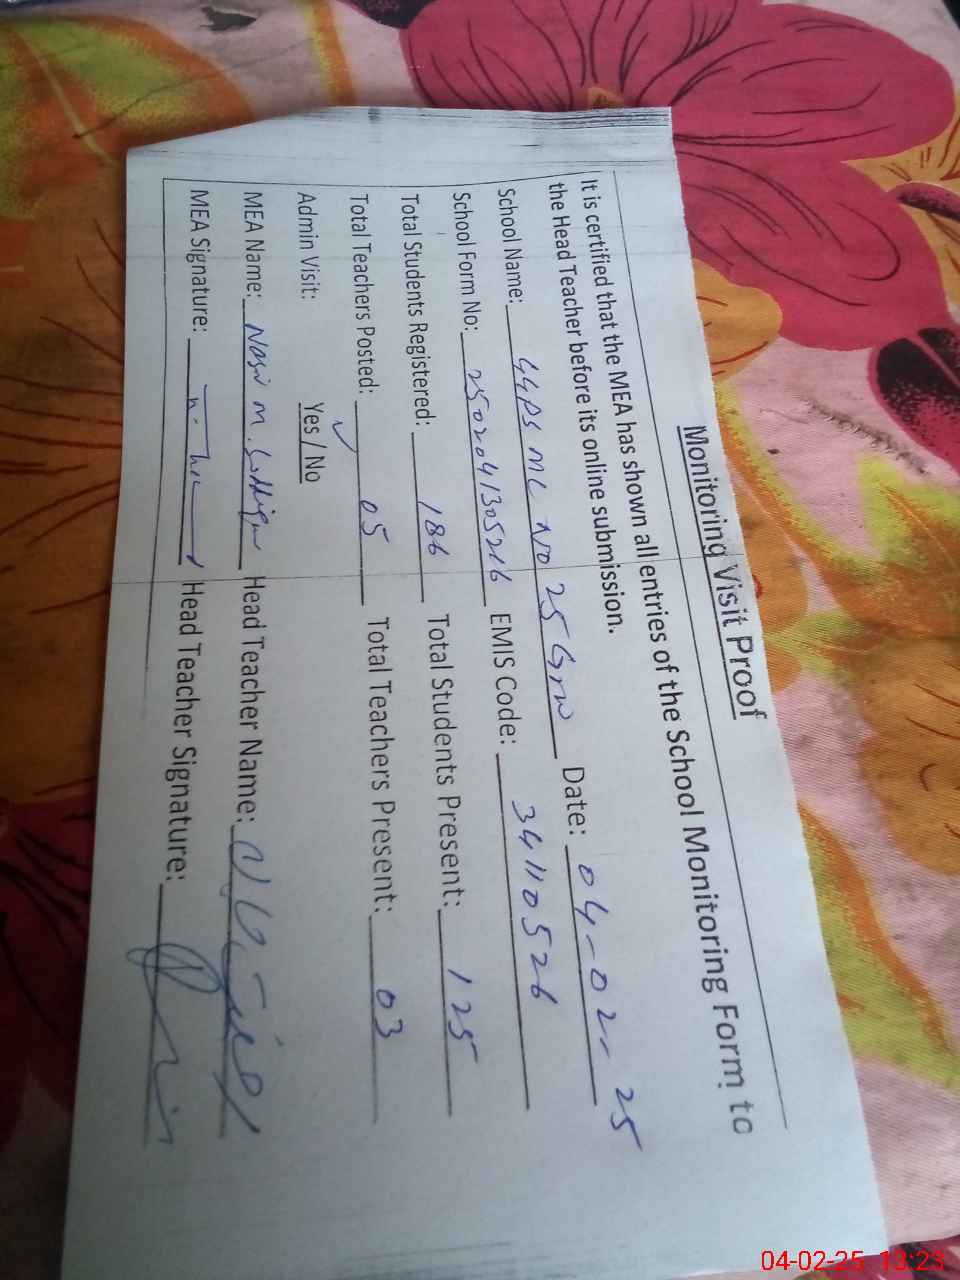 Monitoring Visit Proof
It is certified that the MEA has shown all entries of the School Monitoring Form to
the Head Teacher before its online submission.
School Name: GGPS MC NO 25 Grw Date: 04-02-25
School Form No: 2502041305216 EMIS Code: 34110526
Total Students Registered: 186 Total Students Present: 125
Total Teachers Posted: 05 Total Teachers Present: 03
Admin Visit: Yes / No
MEA Name: Nasir M. Siddique Head Teacher Name:
MEA Signature: Head Teacher Signature:
04-02-25 13:23